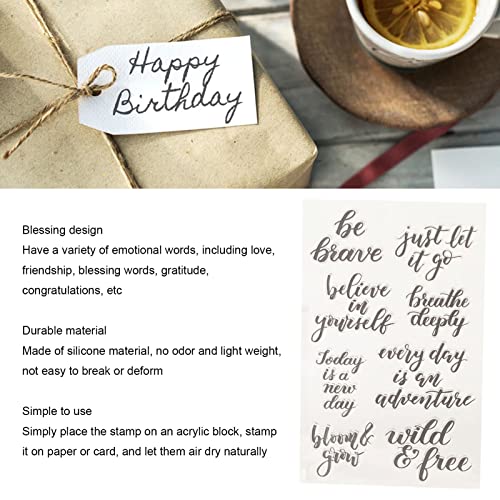 Happy
Birthday
Blessing design
Have a variety of emotional words, including love,
friendship, blessing words, gratitude,
congratulations, etc
Durable material
Made of silicone material, no odor and light weight,
not easy to break or deform
Simple to use
Simply place the stamp on an acrylic block, stamp
it on paper or card, and let them air dry naturally
be
brave
just let
it go
believe
in
yourself
breathe
deeply
Today
is a
new
day
every day
is an
adventure
bloom &
grow
wild
& free